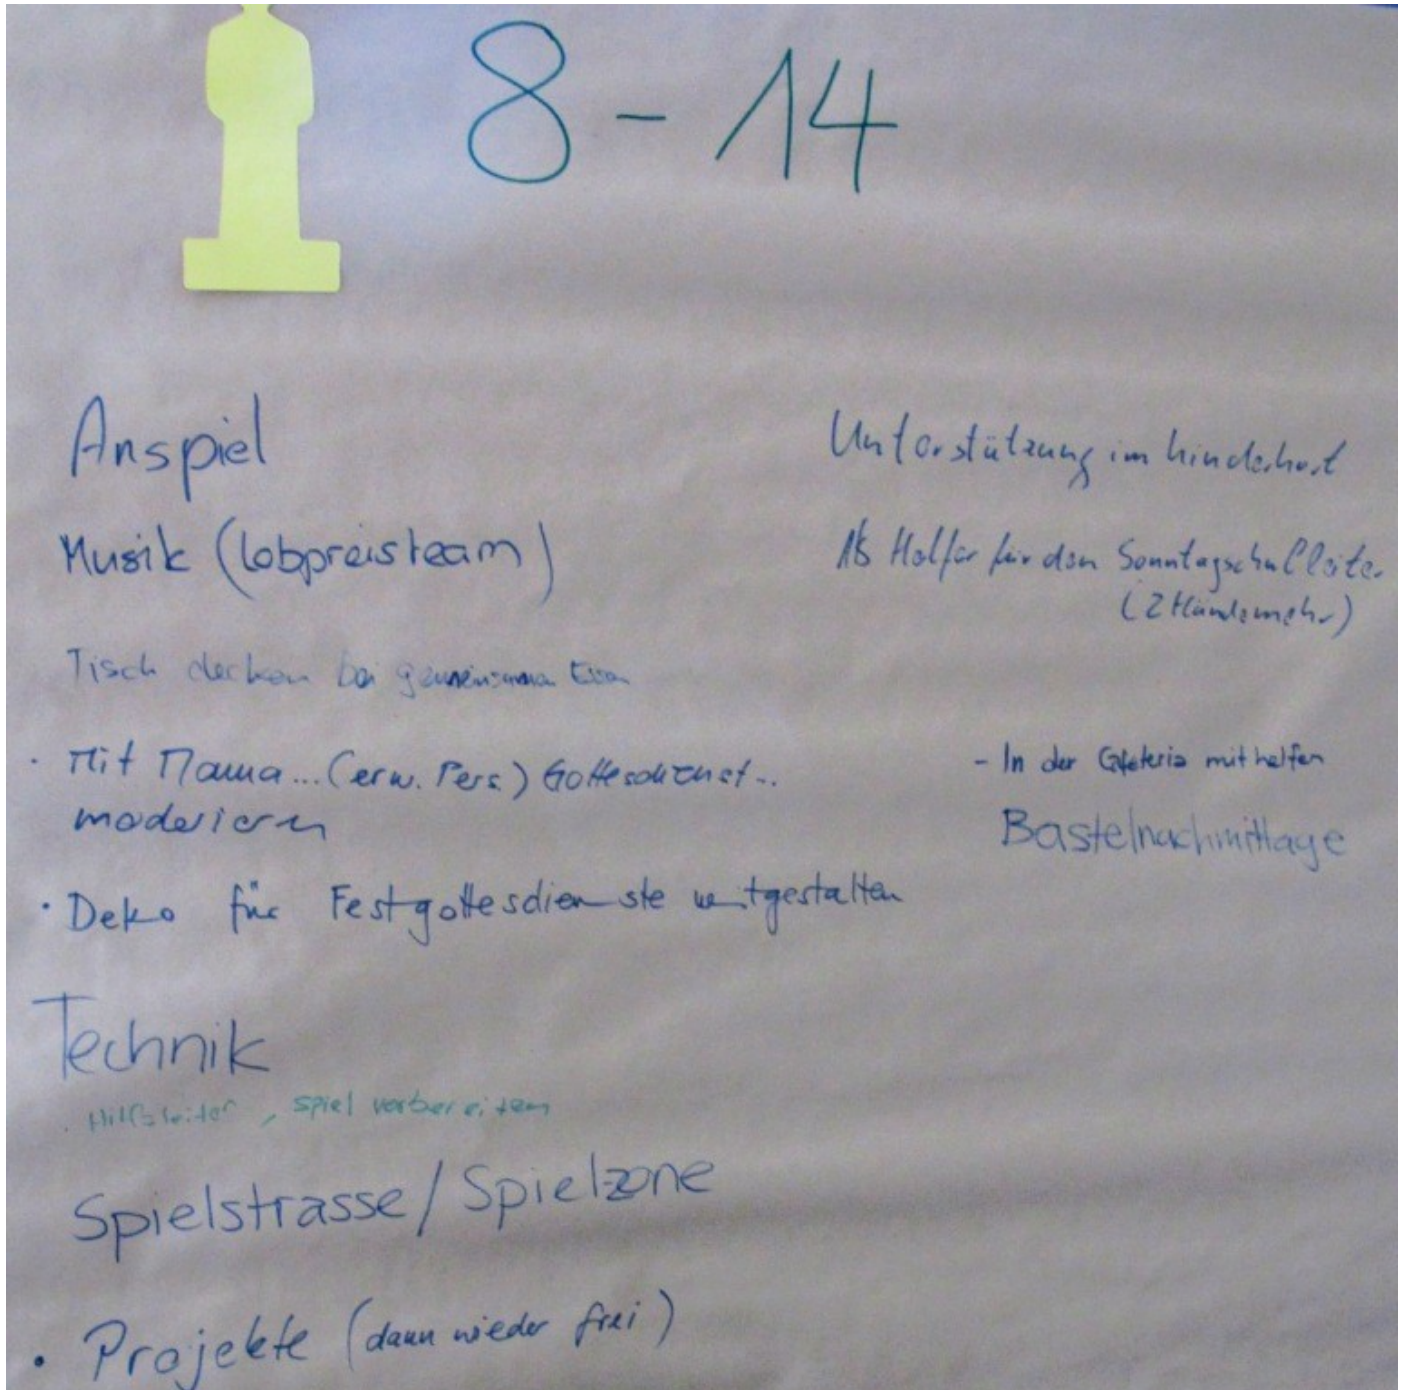 8 - 14
Anspiel
Musik (Lobpreisteam)
Tisch decken bei gemeinsamen Essen
· Mit Mama... (erw. Pers.) Gottesdienst...
moderieren
· Deko für Festgottesdienste mitgestalten
Technik
. Hilfsleiter, spiel vorbereiten
Spielstrasse / Spielzone
• Projekte (dann wieder frei)
Unterstützung im Kinderhort
Als Helfer für den Sonntagschulleiter
(2 Hände mehr)
- In der Cafeteria mithelfen
Bastelnachmittage